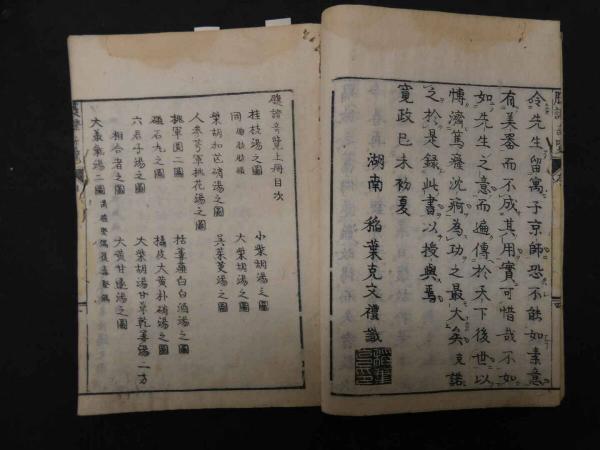 令先生留寓于京師恐不能如素意
有美器而不成其用實可惜哉不如
如先生之意而遍傳於天下後世以
博濟篤癃沈痾為功之最大矣克諾
之於是録此書以授與焉
寛政己未初夏
湖南 稲葉克文禮識
腹證奇覽上冊目次
桂枝湯之圖
小柴胡湯之圖
大柴胡湯之圖
柴胡加芒硝湯之圖
吳茱萸湯之圖
人參芎軍桃花湯之圖
桃軍圓二圖
括蔞薤白白酒湯之圖
磠石丸之圖
橘皮大黄朴硝湯之圖
六君子湯之圖
大柴胡湯甘草乾姜湯二方
相合者之圖
大黄甘遂湯之圖
大承氣湯二圖